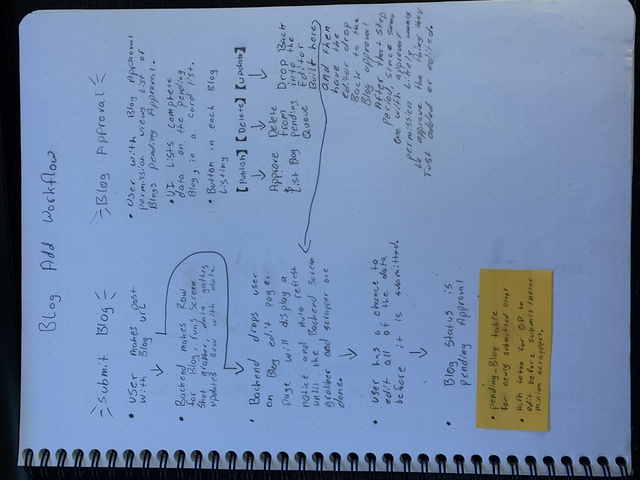 Blog Add Workflow
Submit Blog
• User makes post
with Blog URL
• Backend makes Row
for Blog, runs Screen
Shot grabber, data gathers
updates Row with data
• Backend drops user
on Blog edit page.
page will display a
notice and Auto refresh
until the Backend Screen
grabber and scrapper are
done.
• User has a chance to
edit all of the data
before it is submitted.
• Blog Status is
pending Approval
• pending-Blog table
for newly submitted blogs
• Auth token for OP to
edit before submit
minion scrappers.
Blog Approval
• User with Blog Approval
permission views List of
Blogs pending Approval.
• UI Lists complete
data on the pending
Blog, in a card list.
• Button in each Blog
Listing
[Publish] [Delete] [Update]
Approve
& List Blog
Delete
from
pending
Queue
Drop Back
into the
Editor
Built here,
and then
have the
editor drop
Back to the
Blog approval
After that step
period, since
one with approval
permission
to approve the thing they
Just added or edited.